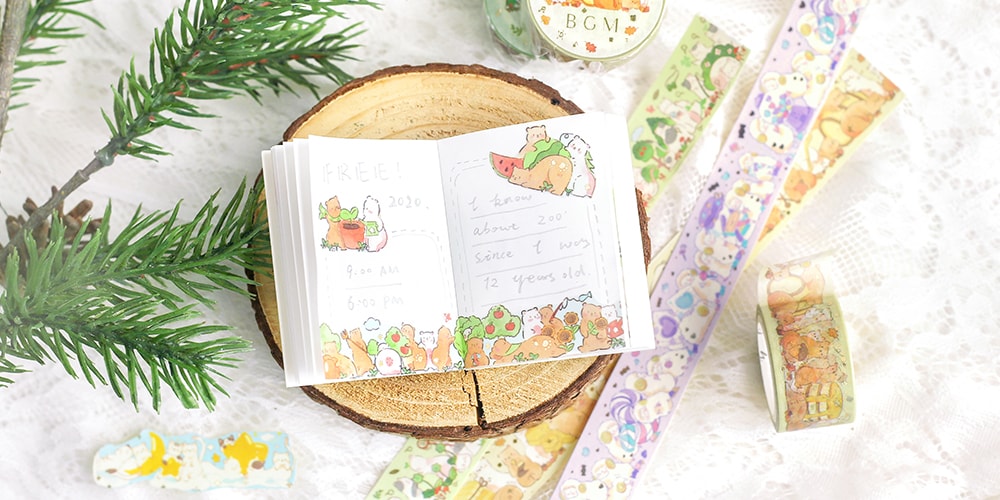 BGM
FREE!
2020.
9:00 AM
6:00 PM
I know
above 200
since I was
12 years old.